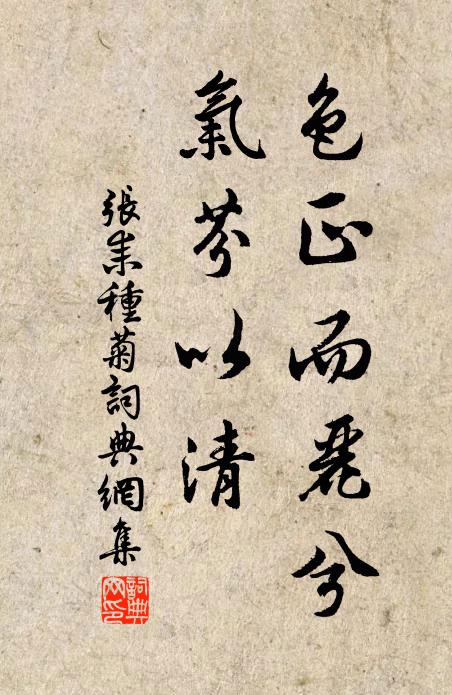 色正而麗兮
氣芬以清
張耒種菊詞典網集
詞典網印